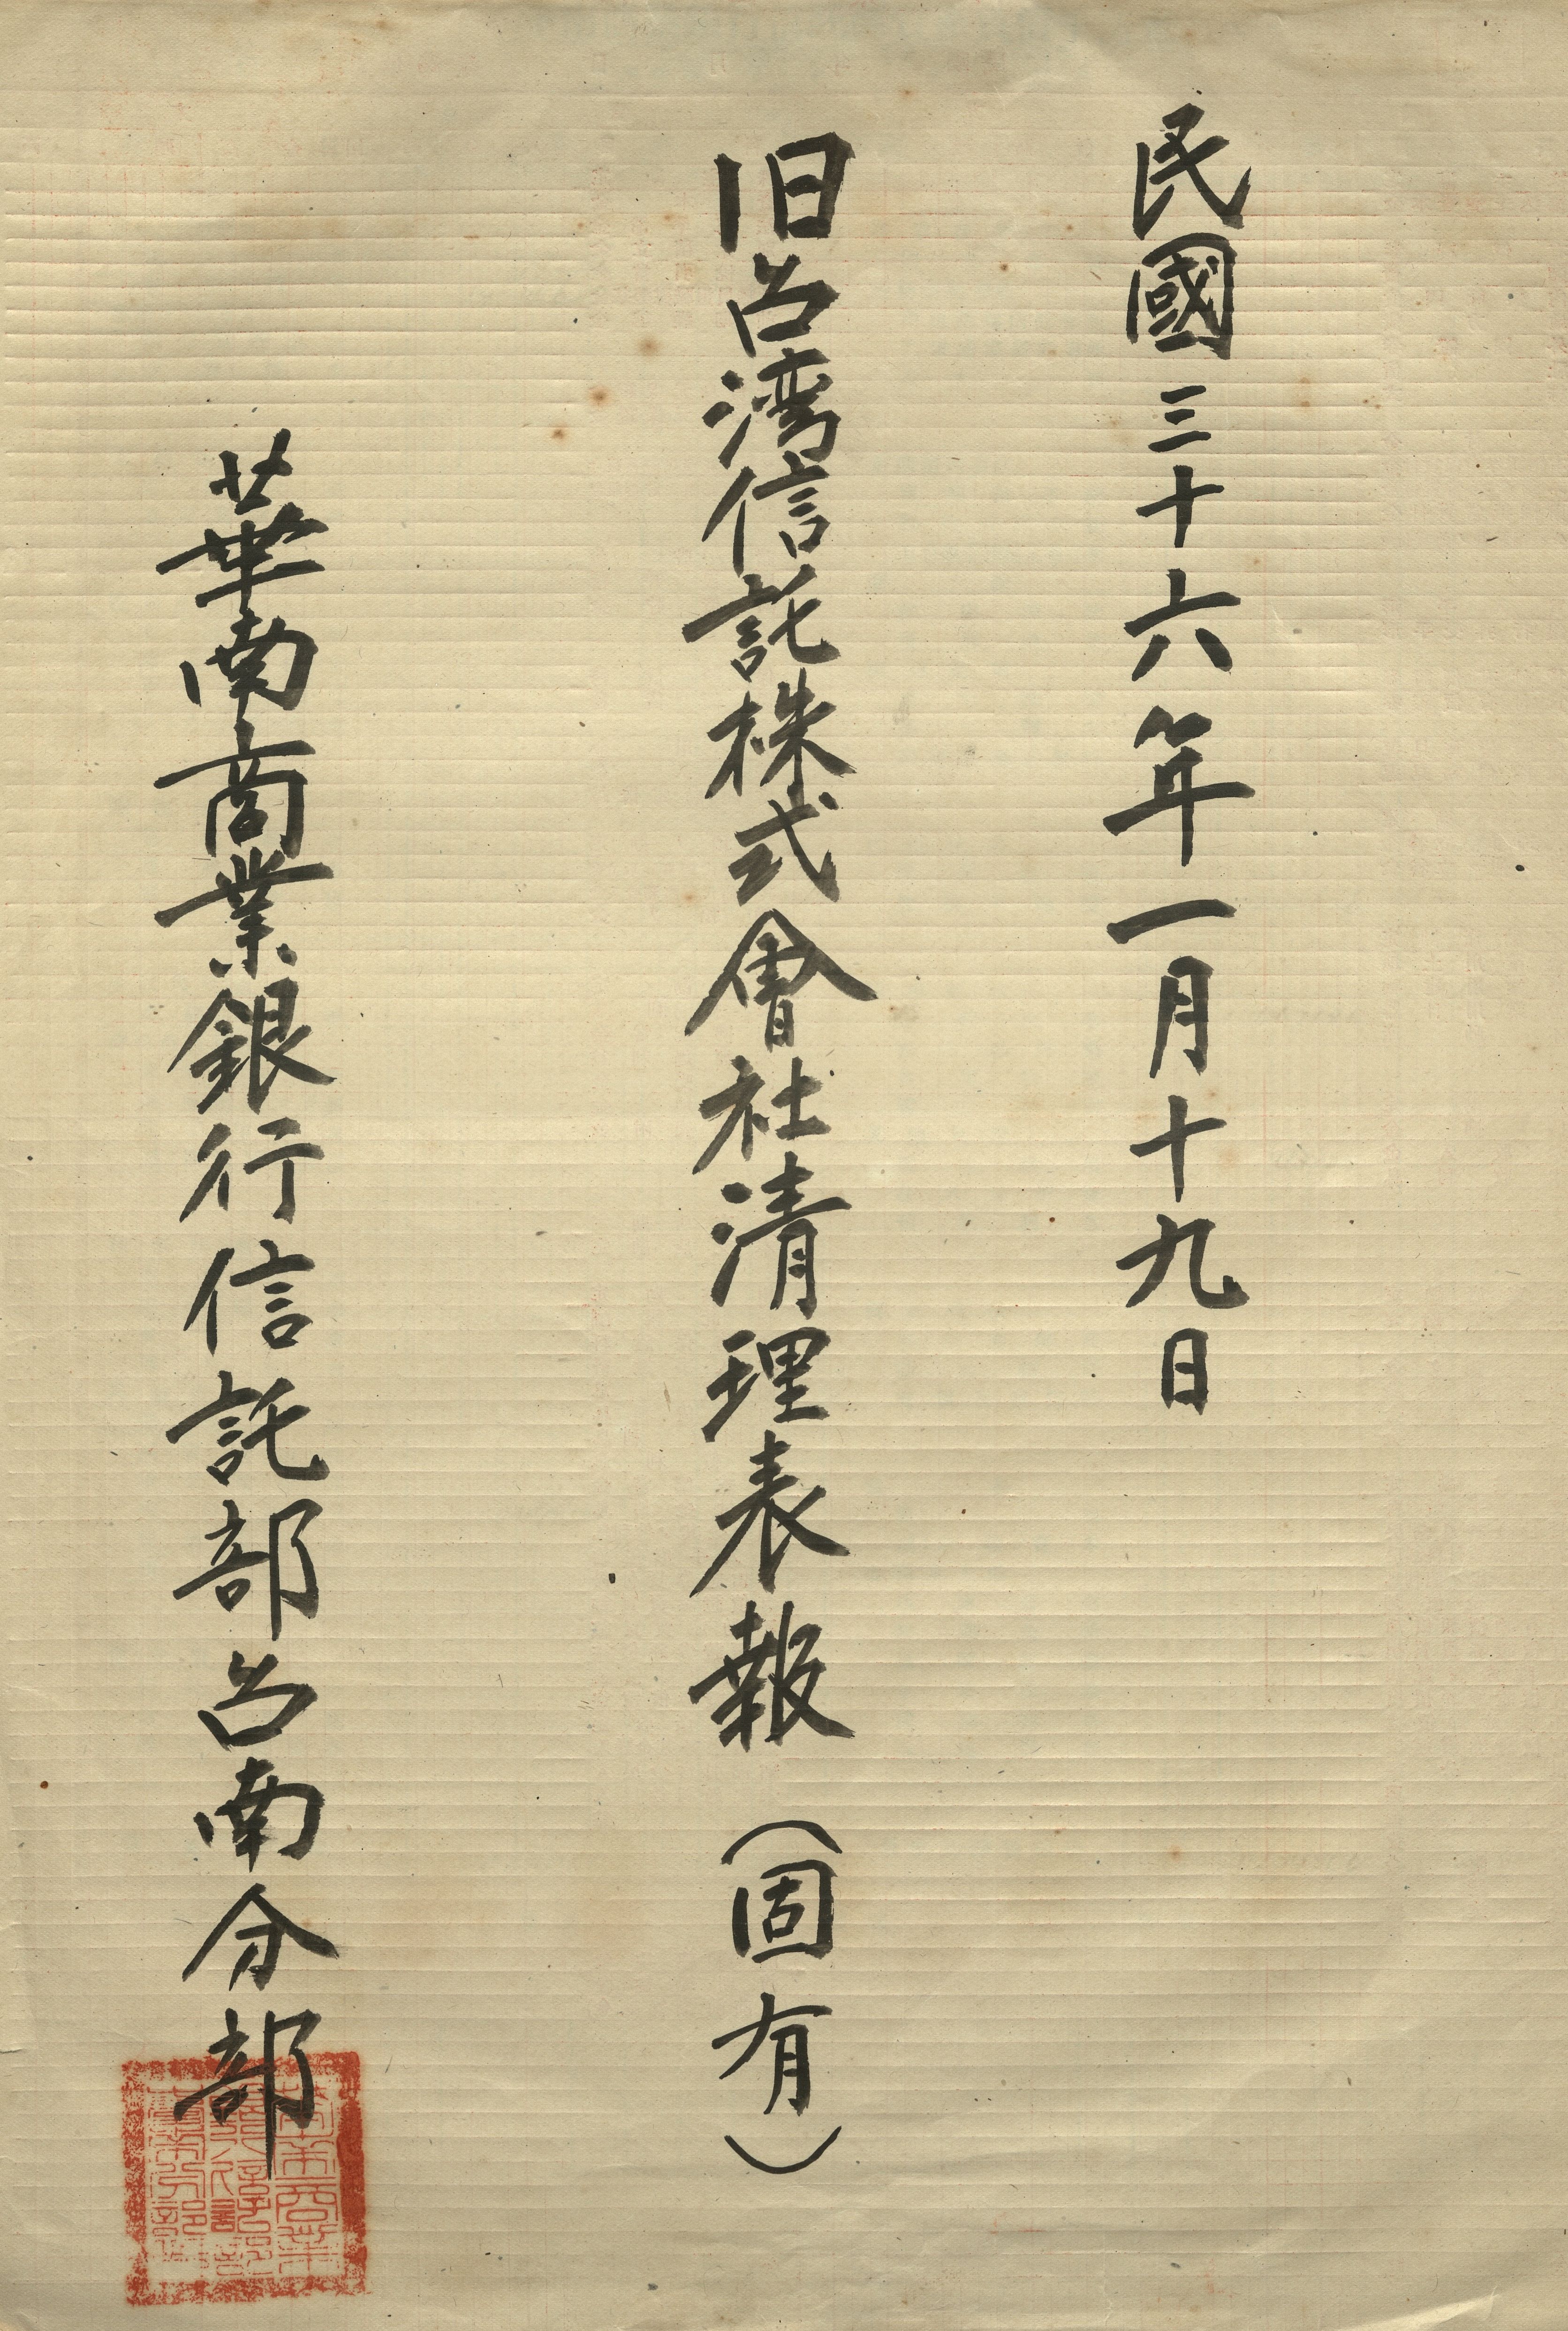 民國三十六年一月十九日
旧台湾信託株式會社清理表報（固有）
華南商業銀行信託部台南分部